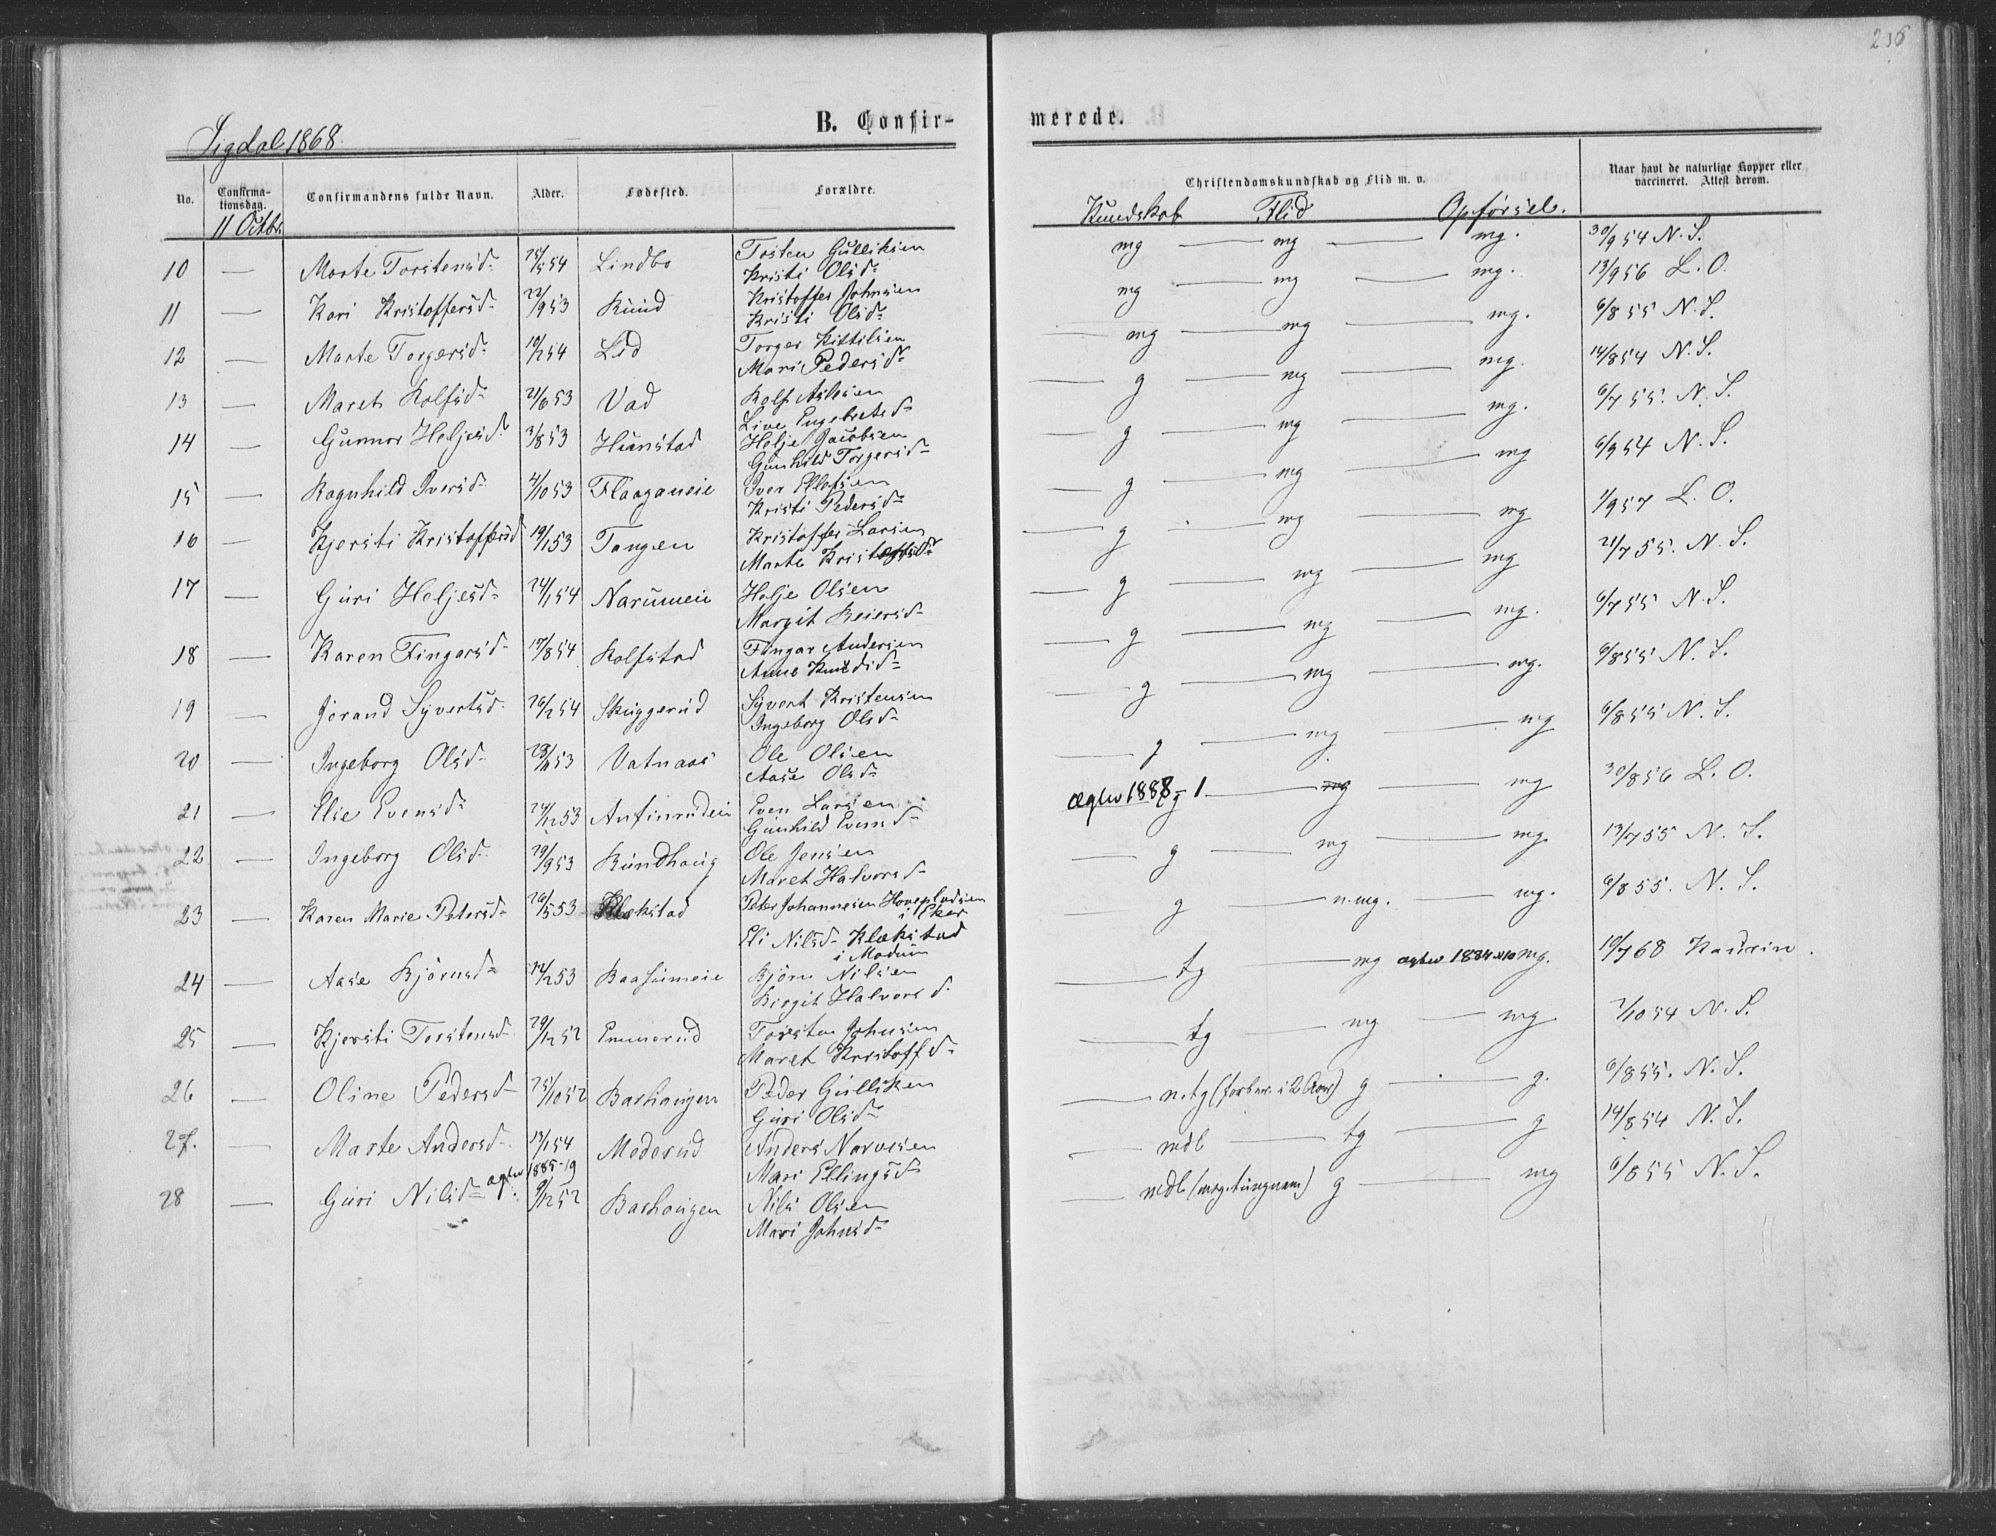 216
Sigdal 1868.
B. Confir-
merede.
No.
Confirma-
tionsdag.
Confirmandens fulde Navn.
Alder.
Fødested.
Forældre.
Christendomskundskab og Flid m. v.
Naar havt de naturlige Kopper eller
vaccineret. Attest derom.
11 Octbr.
Kundskab Flid Opførsel.
10 — Marte Torstensd. 25/5 54 Lindbo Tosten Gulliksen mg — mg — mg. 30/9 54 N. S.
Kristi Olsd.
11 — Kari Kristoffersd. 22/9 53 Rund Kristoffer Johnsen mg — mg — mg. 13/9 56 L. O.
Kristi Olsd.
12 — Marte Torgersd. 10/2 54 Lid Torger Kittilsen — mg — mg — mg. 6/8 55 N. S.
Mari Pedersd.
13 — Maret Rolfsd. 21/6 53 Vad Rolf Aslesen — g — mg — mg. 14/8 54 N. S.
Live Engebretsd.
14 — Gunnor Heljesd. 3/8 53 Hunstad Helje Jacobsen — g — mg — mg. 6/7 55. N. S.
Gunhild Torgersd.
15 — Ragnhild Iversd. 4/10 53 Flaaganeie Iver Ellefsen — g — mg — mg 6/9 54 N. S.
Kristi Pedersd.
16 — Kjersti Kristoffersd 19/1 53 Tangen Kristoffer Larsen — g — mg — mg 1/9 57 L. O.
Marte Kristoffsd.
17 — Guri Heljesd. 24/1 54 Narumeie Helje Olsen — g — mg — mg 21/7 55. N. S.
Margit Reiersd.
18 — Karen Fingarsd. 17/8 54 Kolfstad Fingar Andersen — g — mg — mg. 6/7 55 N. S.
Anne Knudsd.
19 — Jørand Syvertsd. 26/2 54 Skuggerud Syvert Kristensen — g — mg — mg. 6/8 55 N. S.
Ingeborg Olsd.
20 — Ingeborg Olsd. 53 Vatnaas Ole Olsen — g — mg — mg 6/8 55 N. S.
Aase Olsd.
21 — Else Evensd. 24/12 53 Anfinrudeie Even Larsen g — mg — mg 30/8 56 L. O.
Gunhild Evensd.
22 — Ingeborg Olsd. 29/9 53 Rundhaug Ole Jensen — g — mg — mg. 13/7 55 N. S.
Maret Halvorsd.
23 — Karen Marie Petersd. 26/5 53 Klækstad Peter Johannesen g — n.mg. — mg. 6/8 55. N. S.
i Eker
Eli Nilsd. Klækstad
i Modum
24 — Aase Bjørnsd. 14/2 53 Bjørn Nilsen — tg — mg mg. 19/7 68
Birgit Halvorsd.
25 — Kjersti Torstensd. 29/12 52 Ennerud Torsten Johnsen — tg — mg — mg. 7/10 54 N. S.
Maret Kristoffd.
26 — Oline Pedersd 25/10 52 Bashaugen Peder Gulliksen — n.tg g — g. 6/8 55. N. S.
Guri Olsd.
27. — Marte Andersd. 13/1 54 Moderud Anders Narvesen — mdl — tg — g 14/8 54 N. S.
Mari Ellingsd.
1885-19
28 — Guri Nilsd. 9/12 52 Bashaugen Nils Olsen — mdl (meget tungnem) g — mg 6/8 55 N. S.
Mari Johnsd.